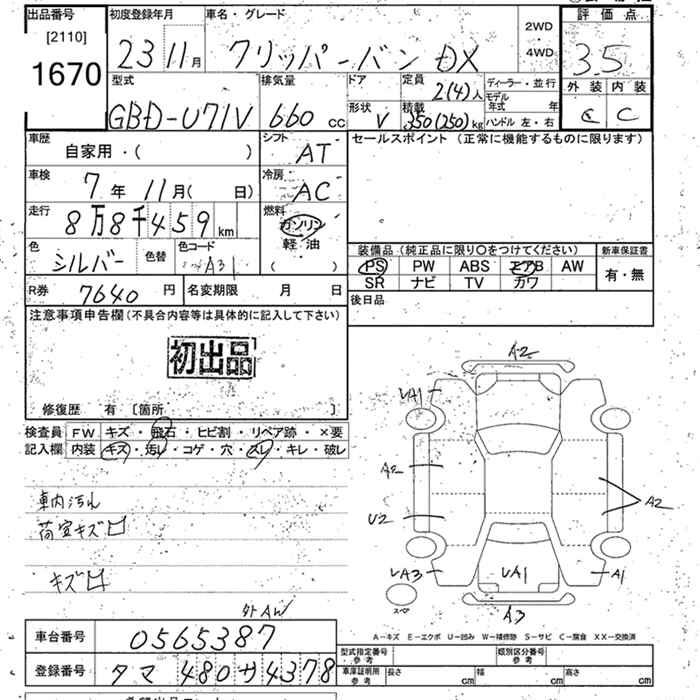 出品番号 初度登録年月 車名・グレード 2WD 評価点
[2110] 23 11月 クリッパーバン DX 4WD 3.5
1670
型式 排気量 ドア 定員 ディーラー・並行 外装 内装
GBD-U71V 660cc 2(4)人 モデル年式 年 C C
形状 V 積載 350(250)kg ハンドル 左・右
車歴 シフト セールスポイント (正常に機能するものに限ります)
自家用・( ) AT
車検 冷房
7年 11月( 日) AC
走行 8万8千459km 燃料 ガソリン
軽油
( )
色 シルバー 色替 色コード A31 装備品 (純正品に限り〇をつけてください) 新車保証書
PS PW ABS エアB AW 有・無
SR ナビ TV カワ
R券 7640円 名変期限 月 日 後日品
注意事項申告欄 (不具合内容等は具体的に記入して下さい)
初出品
修復歴 有 〔箇所 〕
検査員 FW キズ・飛石・ヒビ割・リペア跡・×要
記入欄 内装 キズ・汚レ・コゲ・穴・スレ・キレ・破レ
車内汚れ
荷室キズ凹
キズ凹
外AW
A2
UA1
A2
U2
A2
UA3
UA1
A1
スペア
A3
A-キズ E-エクボ U-凹み W-補修跡 S-サビ C-腐食 XX-交換済
車台番号 0565387
型式指定番号 参考 類別区分番号 参考
登録番号 タマ 480 サ 4378
車庫証明用 参考 長さ cm 幅 cm 高さ cm